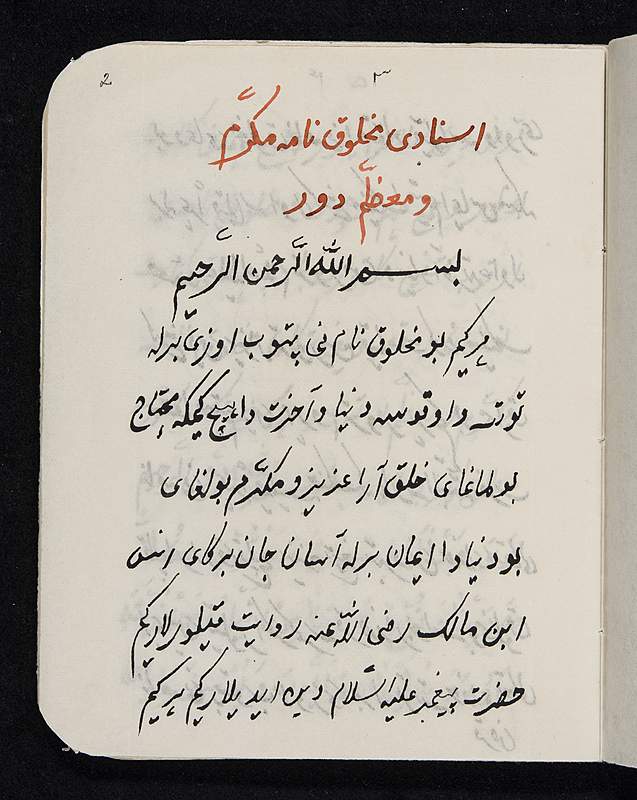 2 ٣
اسنادی مخلوق نامه مکرّم
و معظّم دور
بسم اللّٰه الرَّحمن الرَّحیم
هر کیم بو مخلوق نام نی بتوب اوزی برله
توتسه دا اوقوسه دنیا و آخرت دا هیچ کیمکه محتاج
بولماغای خلق آرا عزیز و مکرّم بولغای
بو دنیا دا ایمان برله آسان جان برکای انس
ابن مالک رضی اللّٰه عنه روایت قیلورلارکیم
حضرت پیغمبر علیه السّلام دین ایدیلارکیم هر کیم